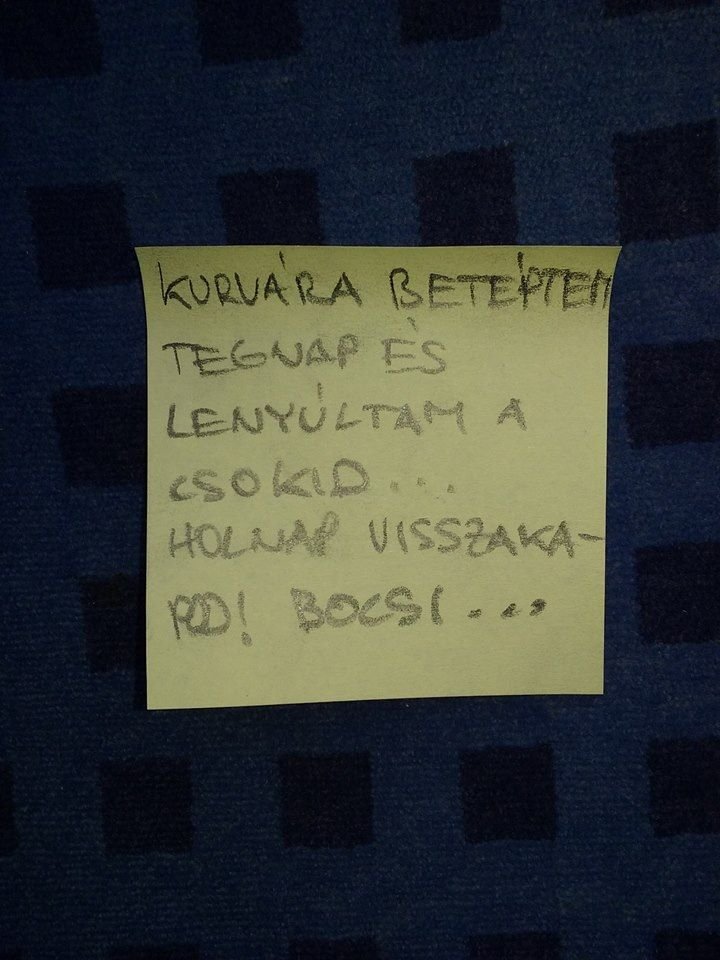 KURVÁRA BETÉPTEM
TEGNAP ÉS
LENYÚLTAM A
CSOKID...
HOLNAP VISSZAKA-
POD! BOCSI...